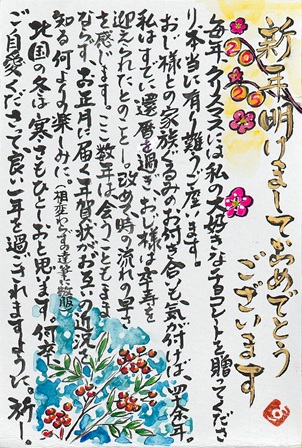 新年明けましておめでとう
ございます
2025
毎年、クリスマスには私の大好きなチョコレートを贈ってくださ
り本当に有り難うございます。
おじ様との家族ぐるみのお付き合いも気が付けば、四十余年。
私はすでに還暦を過ぎ、おじ様は卒寿を
迎えられたとのこと。改めて時の流れの早さ
を感じます。ここ数年は、会うこともまま
ならず、お正月に届く年賀状がお互いの近況を
知る何よりの楽しみに。（相変わらずの達筆に敬服）
北国の冬は寒さもひとしおと思います。何卒
ご自愛くださって良い一年を過ごされますように。祈り